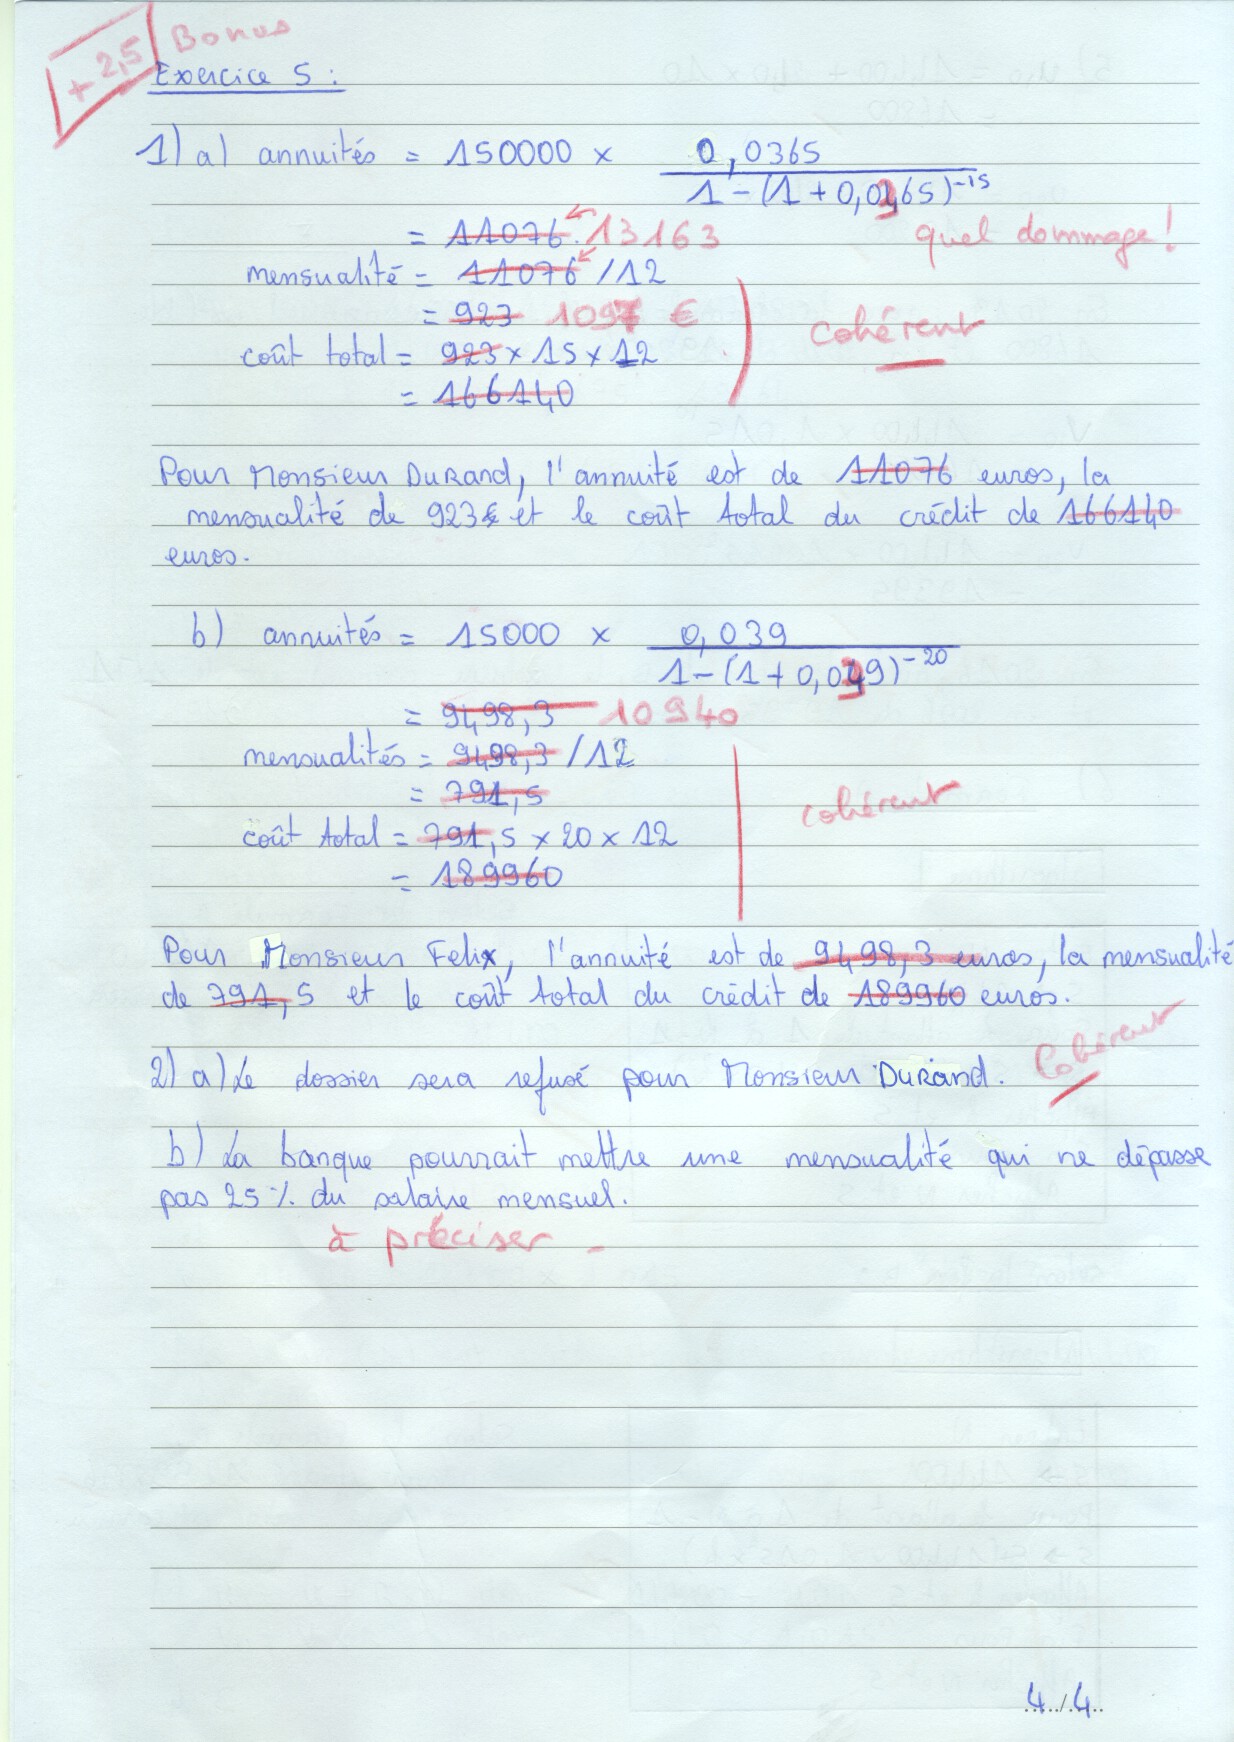 +2,5 Bonus
Exercice 5 :
1) a) annuités = 150000 × 0,0365
1-(1+0,0365)^-15
= 11076. 13163 quel dommage !
mensualité = 11076 /12
= 923 1097 €
cohérent
coût total = 923 × 15 × 12
= 166140
Pour Monsieur Durand, l'annuité est de 11076 euros, la
mensualité de 923€ et le coût total du crédit de 166140
euros.
b) annuités = 15000 × 0,039
1-(1+0,039)^-20
= 9498,3 10940
mensualités = 9498,3 /12
= 791,5
cohérent
coût total = 791,5 × 20 × 12
= 189960
Pour Monsieur Felix, l'annuité est de 9498,3 euros, la mensualité
de 791,5 et le coût total du crédit de 189960 euros.
2) a) Le dossier sera refusé pour Monsieur Durand. Cohérent
b) La banque pourrait mettre une mensualité qui ne dépasse
pas 25% du salaire mensuel.
à préciser -
4/4